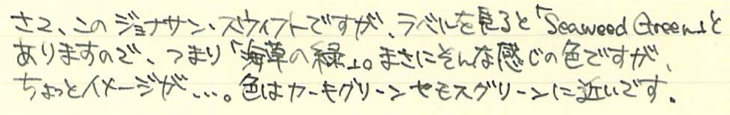 さて、このジョナサン・スウィフトですが、ラベルを見ると「Seaweed Green」と
ありますので、つまり「海草の緑」。まさにそんな感じの色ですが、
ちょっとイメージが…。色はカーキグリーンやモスグリーンに近いです。